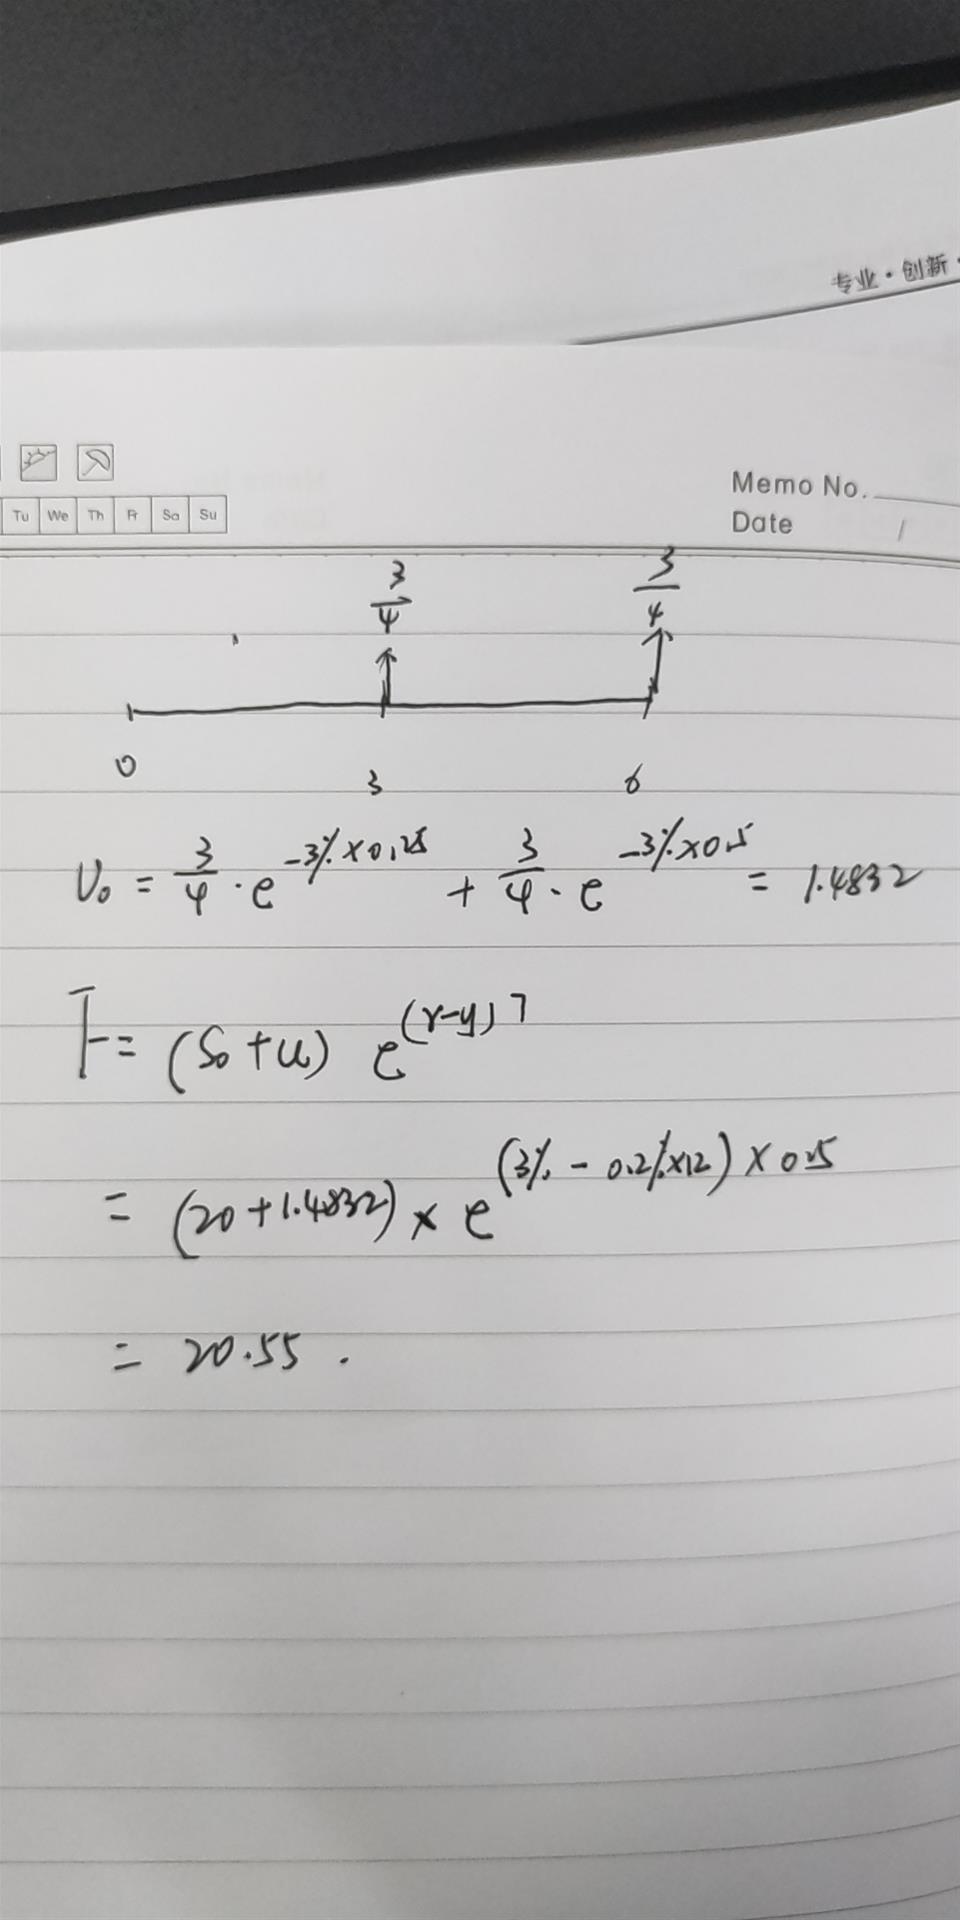 专业·创新·
Memo No.
Tu We Th Fr Sa Su
Date /
3/4 3/4
0 3 6
U₀ = 3/4 · e^(-3%×0.25) + 3/4 · e^(-3%×0.5) = 1.4832
F = (S₀+u) e^((r-y)T)
= (20+1.4832) × e^((3% - 0.2%×12)×0.5)
= 20.55 .